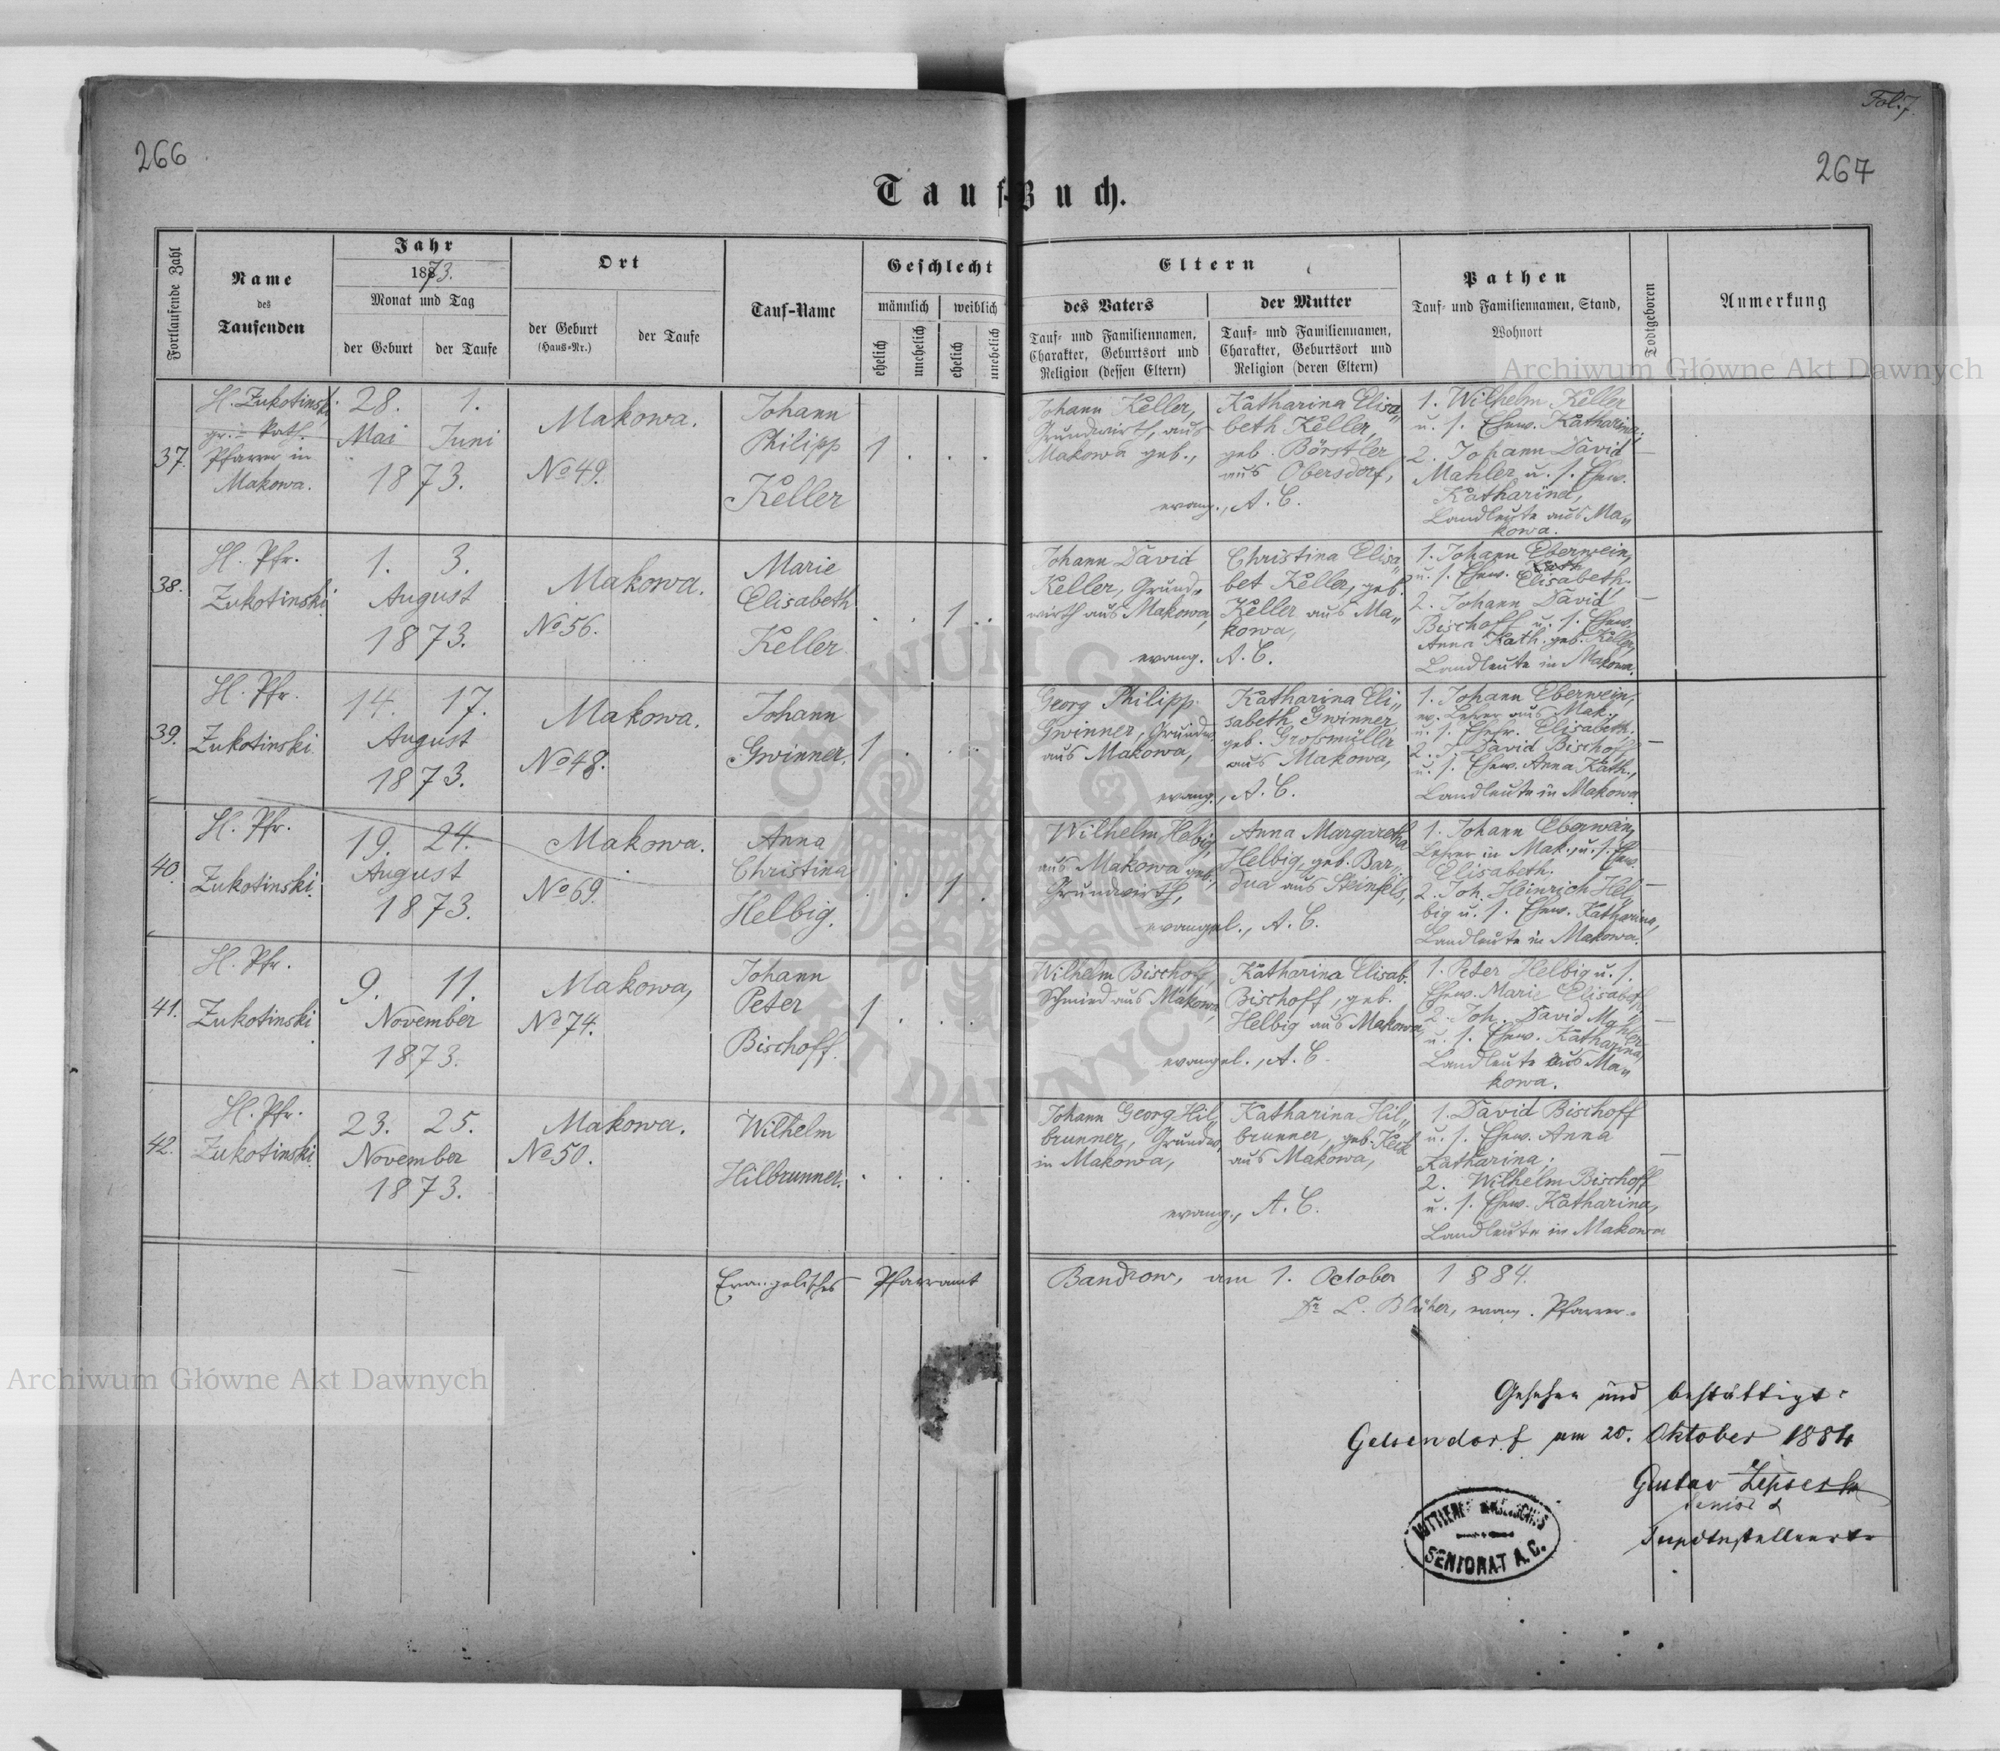 Fol. 7.
266
267
Tauf-Buch.
Fortlaufende Zahl
Name
des
Taufenden
Jahr
1873.
Monat und Tag
der Geburt
der Taufe
Ort
der Geburt
(Haus-Nr.)
der Taufe
Tauf-Name
Geschlecht
männlich
weiblich
ehelich
unehelich
ehelich
unehelich
Eltern
des Vaters
Tauf- und Familiennamen,
Charakter, Geburtsort und
Religion (dessen Eltern)
der Mutter
Tauf- und Familiennamen,
Charakter, Geburtsort und
Religion (deren Eltern)
Pathen
Tauf- und Familiennamen, Stand,
Wohnort
Todtgeboren
Anmerkung
37.
H. Zukotinski
gr. kath.
Pfarrer in
Makowa.
28. 1.
Mai Juni
1873.
Makowa.
No 49.
Johann
Philipp
Keller
1 . . .
Johann Keller,
Grundwirth, aus
Makowa geb.,
Katharina Elisa„
beth Keller,
geb. Börstler
aus Obersdorf,
evang., A. C.
1. Wilhelm Keller
u. s. Ehew. Katharina;
2. Johann David
Mahler u. s. Ehew.
Katharina,
Landleute aus Ma„
kowa.
—
38.
H. Pfr.
Zukotinski
1. 3.
August
1873.
Makowa.
No 56.
Marie
Elisabeth
Keller
. . 1 .
Johann David
Keller, Grund„
wirth aus Makowa,
Christina Elisa„
bet Keller, geb.
Keller aus Ma„
kowa,
evang. A. C.
1. Johann Eberwein,
u. s. Ehew. Kath
Elisabeth.
2. Johann David
Bischoff u. s. Ehew.
Anna Kath. geb. Keller,
Landleute in Makowa.
—
39.
H. Pfr.
Zukotinski.
14. 17.
August
1873.
Makowa.
No 48.
Johann
Gwinner.
1 . . .
Georg Philipp
Gwinner, Grundw.
aus Makowa,
Katharina Eli„
sabeth Gwinner
geb. Grossmüller
aus Makowa,
evang., A. C.
1. Johann Eberwein,
ev. Lehrer aus Mak.
u. s. Ehefr. Elisabeth.
2. J. David Bischoff
u. s. Ehew. Anna Kath.,
Landleute in Makowa.
—
40.
H. Pfr.
Zukotinski.
19. 24.
August
1873.
Makowa.
No 69.
Anna
Christina
Helbig.
. . 1 .
Wilhelm Helbig,
aus Makowa geb,
Grundwirth,
Anna Margaretha
Helbig, geb. Bar„
dua aus Steinfels,
evangel., A. C.
1. Johann Eberwein,
Lehrer in Mak., u. s. Ehew.
Elisabeth.
2. Joh. Heinrich Hel„
big u. s. Ehew. Katharina,
Landleute in Makowa.
—
41.
H. Pfr.
Zukotinski.
9. 11.
November
1873.
Makowa,
No 74.
Johann
Peter
Bischoff.
1 . . .
Wilhelm Bischoff,
Schmied aus Makowa,
Katharina Elisab.
Bischoff, geb.
Helbig aus Makowa,
evangel., A. C.
1. Peter Helbig u. s.
Ehew. Marie Elisabeth,
2. Joh. David Mahler
u. s. Ehew. Katharina,
Landleute aus Ma„
kowa.
—
42.
H. Pfr.
Zukotinski.
23. 25.
November
1873.
Makowa.
No 50.
Wilhelm
Hilbrunner.
. . . .
Johann Georg Hil„
brunner, Grundw,
in Makowa,
Katharina Hil„
brunner, geb. Keck
aus Makowa,
evang., A. C.
1. David Bischoff
u. s. Ehew. Anna
Katharina.
2. Wilhelm Bischoff
u. s. Ehew. Katharina,
Landleute in Makowa
—
Evangelisches Pfarramt Bandrow, am 1. October 1884.
Dr. L. Blüher, evang. Pfarrer.
Gesehen und bestättigt:
Gelsendorf am 20. Oktober 1884
Gustav
Senior
SENIORAT A. C.
Archiwum Główne Akt Dawnych
Archiwum Główne Akt Dawnych
ARCHIWUM GŁÓWNE AKT DAWNYCH